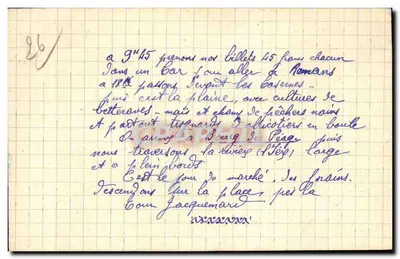 26
a 9h45 prenons nos billets 45 francs chacun
dans un Car pour aller à Romans
a 18h passons devant les Casernes -
puis c'est la plaine, avec cultures de
betteraves - maïs et champs de pêchers nains
et partout abricotiers en boule
On arrive Bourg de Péage puis
nous traversons la rivière (l'Isère) large
et a plein bords
C'est le jour du marché, des forains.
descendons sur la place, près la
Tour Jacquemard